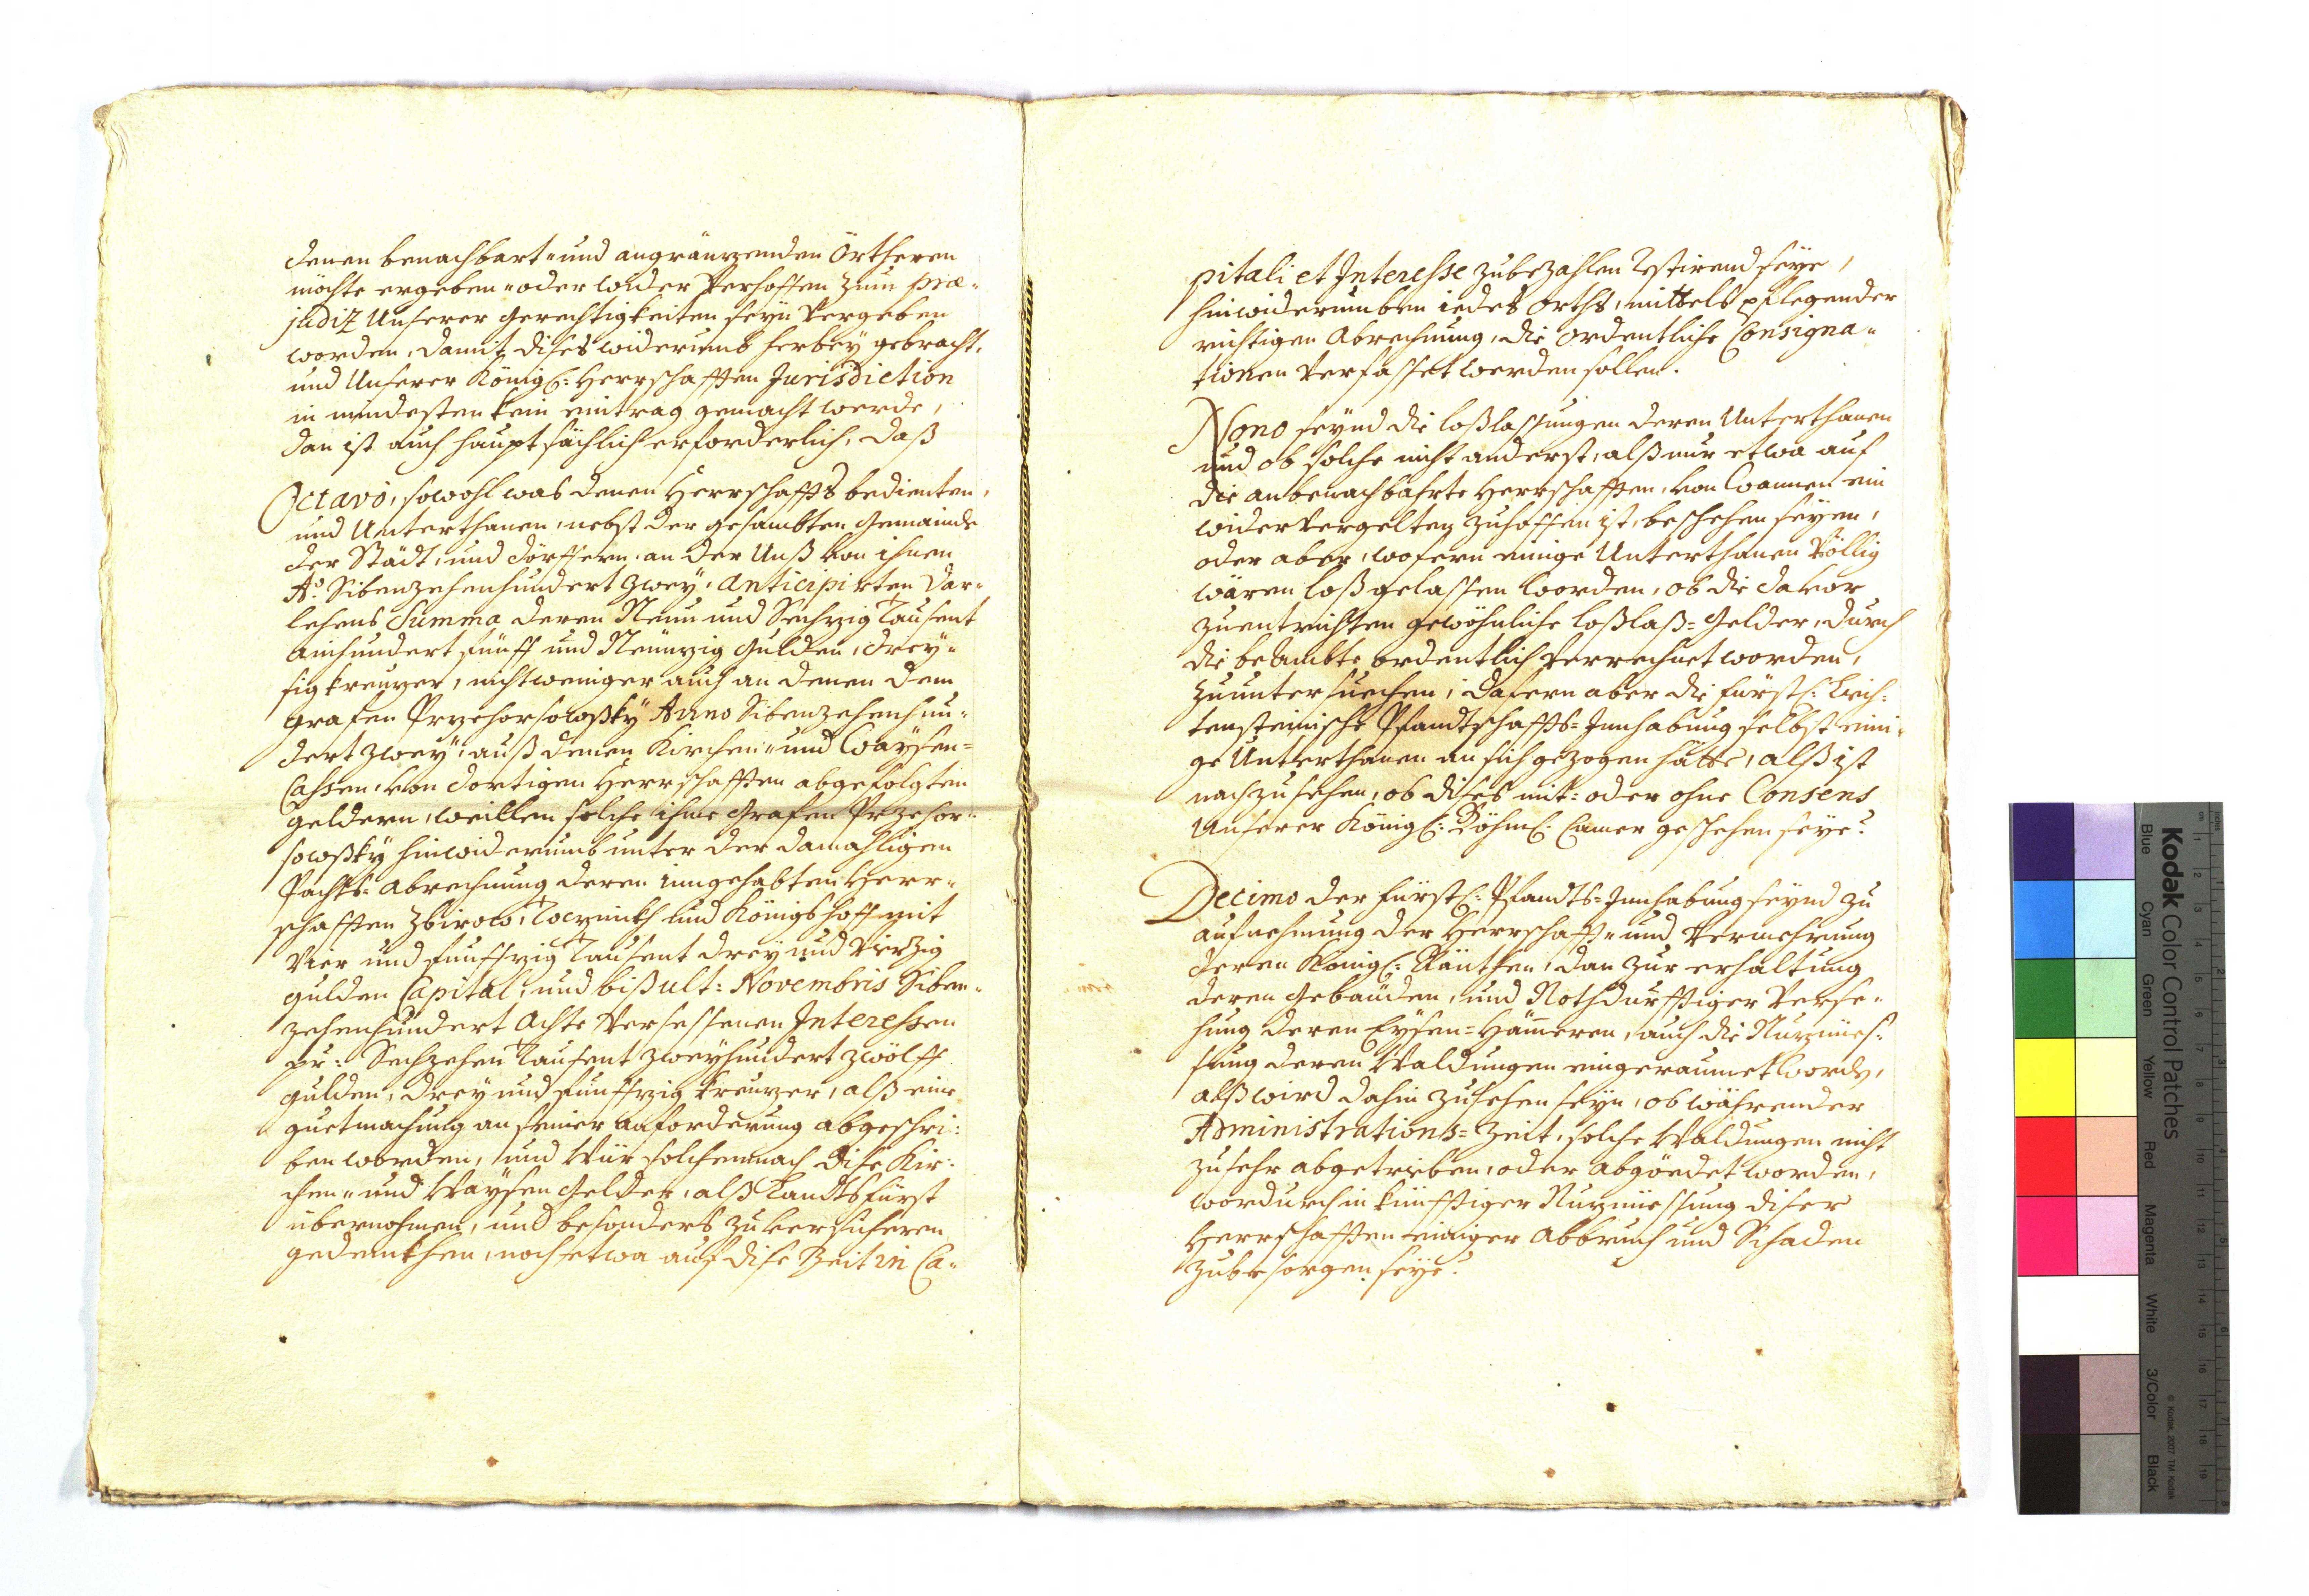 denen benachbart- und angränzenden Örtheren
möchte ergeben- oder wider Verhoffen zum præ-
judiz Unserer Gerechtigkeiten seyn Vergeben
worden, damit dises widerumb herbey gebracht,
und Unserer Königl: Herrschafften Jurisdiction
in mindesten kein eintrag gemacht werde,
dan ist auch hauptsächlich erforderlich, daß
Octavò, sowohl was denen Herrschaffts bedienten,
und Unterthanen, nebst der gesambten Gemainde
der Städt, und dörffern, an der Unß von ihnen
Aō. Sibenzehenhundert zwey, anticipirten Dar-
lehens Summa deren Neun und Sechzig Tausent
ainhundert fünff und Neünzig Gulden, drey-
sig kreuzer, nicht weniger auch an denen dem
Grafen Przehorsowßky Anno Sibenzehenhun-
dert zwey, auß denen Kirchen- und Waysen-
Cassen, von dortigen Herrschafften abgefolgten
geldern, weillen solche ihme Grafen Przehor-
sowßky hinwiderumb unter der damahligen
Pachts-Abrechnung deren inngehabten Herr-
schafften Zbirow, Tocznikh und Königshoff mit
Vier und funffzig Tausent drey und Vierzig
gulden Capital, und biß ult: Novembris Siben-
zehenhundert Achte Versessenen Interessen
pr: Sechzehen Tausent zweyhundert zwölff
gulden, drey und funffzig kreuzer, alß eine
guetmachung an seiner anforderung abgeschri-
ben worden, und Wür solchemnach dise Kir-
chen- und Waysen Gelder, alß Landtsfürst
übernohmen, und besonders zu versicheren
gedenkhen, noch etwa auf dise Zeit in Ca-
pitali et Interesse zubezahlen restirend seye,
hinwiderumben iedes Orths, mittels pflegender
richtigen Abrechnung, die ordentliche Consigna-
tionen Verfasset werden sollen.
Nono seynd die loßlassungen deren Unterthanen
und ob solche nicht anderst, alß nur etwa auf
die anbenachbahrte Herrschafften, von wannen ein
widervergelten zuhoffen ist, beschehen seyen,
oder aber, wofern einige Unterthanen Völlig
wären loßgelassen worden, ob die davor
zuentrichten gewöhnliche loßlaß-Gelder, durch
die beambte ordentlich Verrechnet worden,
zuuntersuechen; dafern aber die fürstl: Liech-
tensteinische Pfandtschaffts-Innhabung selbst eini-
ge Unterthanen an sich gezogen hätte, alß ist
nachzusehen, ob dises mit- oder ohne Consens
Unserer Königl: Böhml: Camer geschehen seye?
Decimo der fürstl: Pfandts-Innhabung seynd zu
aufnehmung der Herrschafft- und Vermehrung
deren Königl: Räntthen, dan zur erhaltung
deren Gebäuden, und Nothdürfftiger Verse-
hung deren Eysen-Hämeren, auch die Nuznües-
sung deren Waldungen eingeraumet worden,
alß wird dahin zusehen seyn, ob währender
Administrations-Zeit, solche Waldungen nicht
zusehr abgetrieben, oder abgöedet worden,
wordurch in künfftiger Nuznüessung diser
Herrschafften einiger Abbruch und Schaden
zubesorgen seye?
Kodak Color Control Patches
Blue Cyan Green Yellow Red Magenta White 3/Color Black
© Kodak, 2007 TM: Kodak